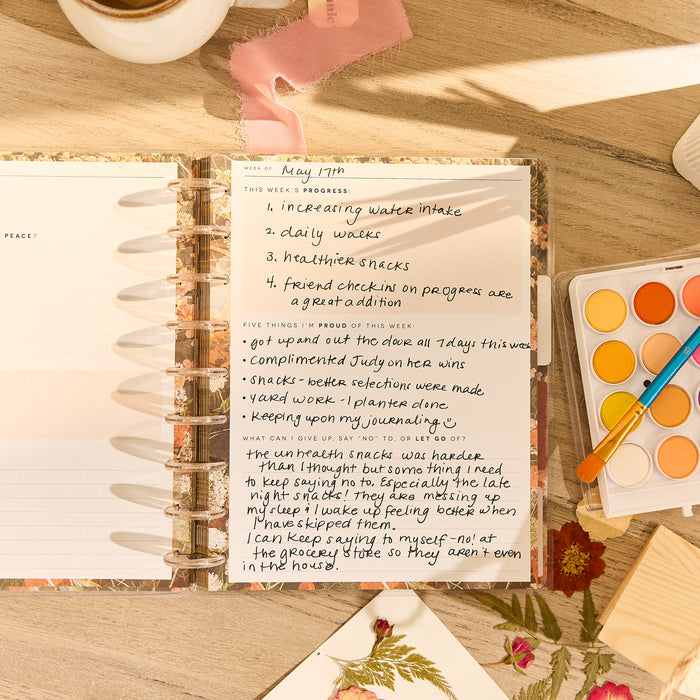 anic
PEACE?
WEEK OF: May 17th
THIS WEEK'S PROGRESS:
1. increasing water intake
2. daily walks
3. healthier snacks
4. friend checkins on progress are
a great addition
FIVE THINGS I'M PROUD OF THIS WEEK:
• got up and out the door all 7 days this week
• complimented Judy on her wins
• snacks - better selections were made
• yard work - 1 planter done
• keeping up on my journaling ☺
WHAT CAN I GIVE UP, SAY "NO" TO, OR LET GO OF?
the unhealth snacks was harder
than I thought but something I need
to keep saying no to. Especially the late
night snacks! They are messing up
my sleep & I wake up feeling better when
I have skipped them.
I can keep saying to myself - no! at
the grocery store so they aren't even
in the house.